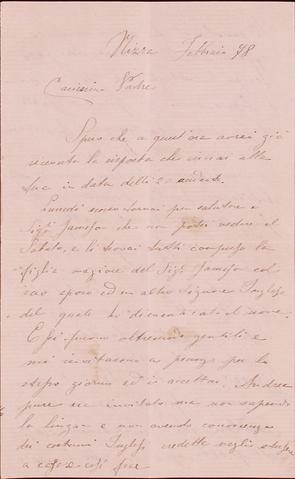 Nizza Febbraio 78
Carissimo Padre
Spero che a quest'ora avrai già
ricevuto la risposta che inviai alla
tua in data delli 20 andante.
Lunedì scorso tornai per salutare i
Sigi Jameson che non potei vedere il
Sabato, e li trovai tutti compreso la
figlia maggiore del Sigr Jameson col
suo sposo ed un altro Signore Inglese
del quale ho dimenticato il nome.
Essi furono oltremodo gentili e
mi invitarono a pranzo per lo
stesso giorno ed io accettai. Andrea
pure era invitato ma non sapendo
la lingua e non avendo conoscenza
dei costumi Inglesi credette meglio
a casa e così fece